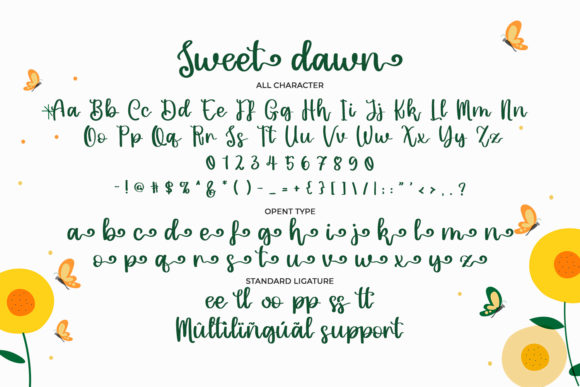 Sweet dawn
ALL CHARACTER
Aa Bb Cc Dd Ee Ff Gg Hh Ii Jj Kk Ll Mm Nn
Oo Pp Qq Rr Ss Tt Uu Vv Ww Xx Yy Zz
0 1 2 3 4 5 6 7 8 9 0
~ ! @ # $ % ^ & * ( ) - _ = + { } [ ] \ / | : ; " ' < > , . ?
OPENT TYPE
a b c d e f g h i j k l m n
o p q r s t u v w x y z
STANDARD LIGATURE
ee ll oo pp ss tt
Mûltilïñgúãl support